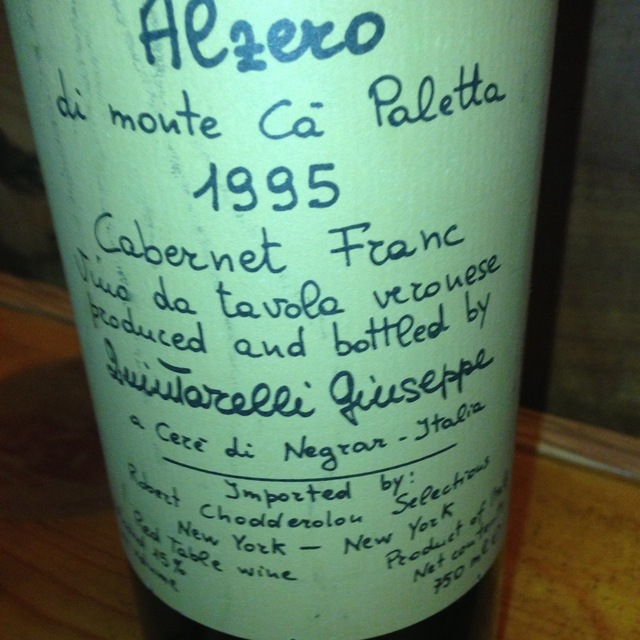 Alzero
di monte Cà Paletta
1995
Cabernet Franc
Vino da tavola veronese
produced and bottled by
Quintarelli Giuseppe
a Cerè di Negrar - Italia
Imported by:
Robert Chodderolou Selections
New York - New York
Red Table wine Product of
15% Net
750 ml